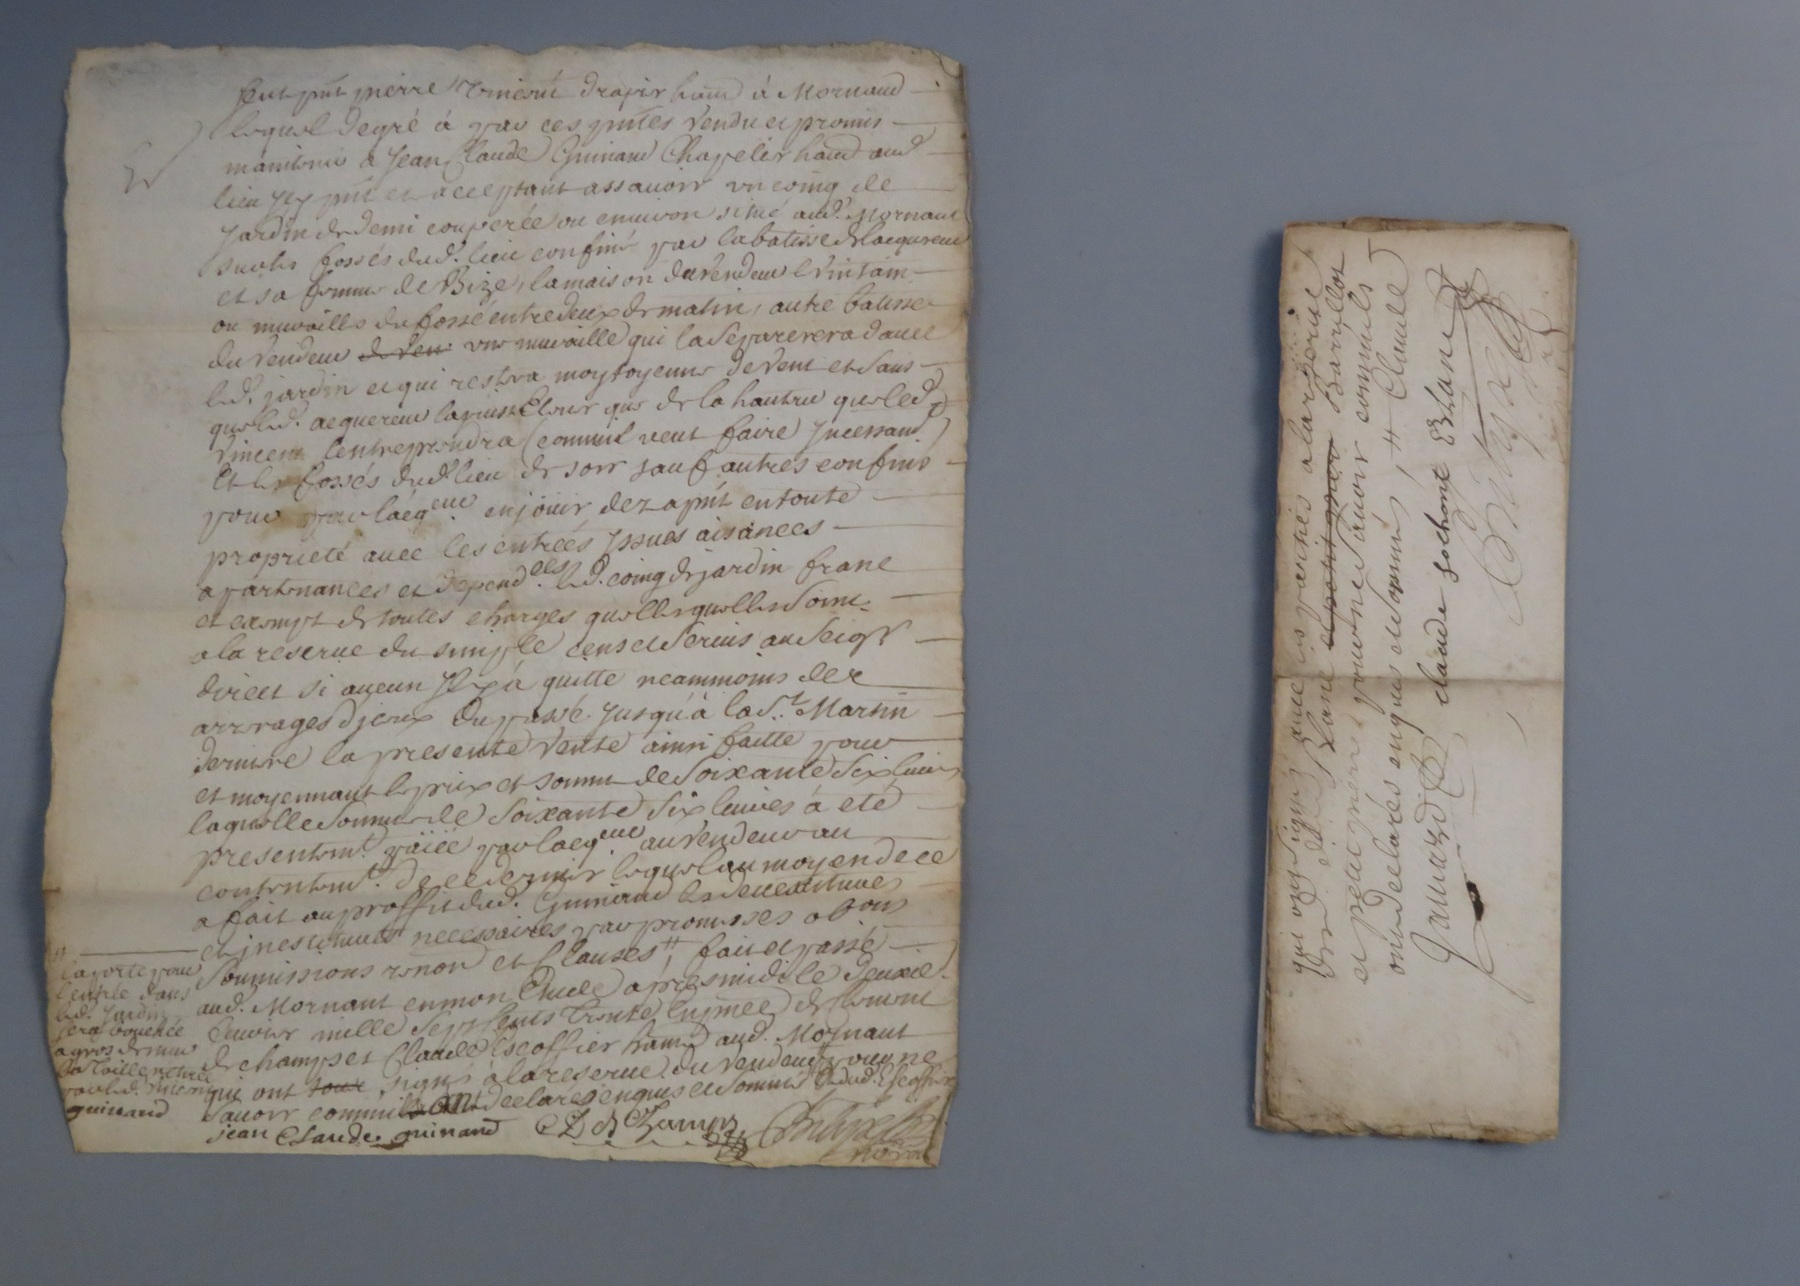 fut pnt pierre Vincent drapier habt à Mornand
lequel degré à par ces pntes Vendu et promis
maintenir a Jean Claude Guinand Chapelier habt aud
lieu Icy pnt et acceptant assavoir un coing de
Jardin de demi couperée ou environ situé aud. Mornant
sur les fossés dud. lieu confiné par la batisse de lacquereur
et sa femme de Bize, la maison du vendeur
ou murailles du fossé entredeux de matin, autre batisse
du vendeur de ven une muraille qui la separerera davec
led. jardin et qui restera moytoyenne de vent et sans
que led. acquereur la puisse que de la hauteur que led.
Vincent lentreprendra (comme il veut faire Incessamt)
Et les fossés dud. lieu de soir sauf autres confins
pour par lacqeur en jouir dez apnt en toute
proprieté avec les entrées Issues aisances
apartenances et dependces led. coing de jardin franc
et exempt de toutes charges quelles quelles soint
a la reserve du simple cens et servis au Seigr
direct si aucun Il y a quitte neammoins des
arrerages d'jceux du passé jusqu'à la St. Martin
derniere la presente Vente ainsi faitte pour
et moyennant le prix et somme de Soixante Six livres
laquelle somme de Soixante Six livres à eté
presentemt. païée par lacqeur au vendeur au
contentemt. de ce dernier lequel au moyen de ce
a fait au proffit dud. Guinand les devestitures
et investitures necessaires par promesses obons
Soumissions renon et Clauses, fait et passé
aud. Mornant en mon Etude après midi le deuxie.
Janvier mille Sept Cents Trente
de champs et Claude Escoffier habt aud. Mornant
qui ont tous signé à la reserve du vendeur pour ne
savoir comme ont declaré enquis et sommés dud. Escoffier
jean Claude guinand De Champs
la porte pour
lentrée dans
led. Jardin
sera bouchée
a gros de mur
par led. Vincent
guinand
qui ont signé avec les parties a la reserve
dud. Blane et petit pierre Barillot
et petit pierre pour ne savoir comme ils
ont declarés enquis et sommés, 4 Claude
claude Blanc